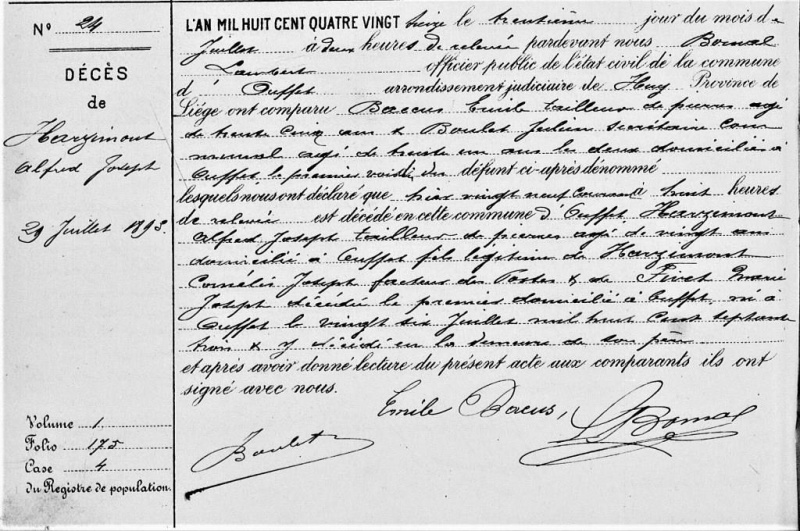 N° 24
DÉCÈS
de
Harzimont
Alfred Joseph
29 Juillet 1893
Volume 1
Folio 175
Case 4
du Registre de population.
L'AN MIL HUIT CENT QUATRE VINGT treize le trentième jour du mois de
Juillet à deux heures de relevée pardevant nous Bomal
Lambert officier public de l'état civil de la commune
d' Ouffet arrondissement judiciaire de Huy Province de
Liége ont comparu Baccus Emile tailleur de pierres agé
de trente cinq ans & Boulet Julien secrétaire com
munal agé de trente un ans les deux domiciliés à
Ouffet le premier voisin du défunt ci-après dénommé
lesquels nous ont déclaré que hier vingt neuf courant à huit heures
de relevée est décédé en cette commune d' Ouffet Harzimont
Alfred Joseph tailleur de pierres agé de vingt ans
domicilié à Ouffet fils légitime de Harzimont
Cornélis Joseph facteur des Postes & de Pivet Marie
Joseph décédée le premier domicilié à Ouffet, né à
Ouffet le vingt six Juillet mil huit cent septante
trois & y décédé en la demeure de son père
et après avoir donné lecture du présent acte aux comparants ils ont
signé avec nous.
Emile Bacus,
L Bomal
Boulet